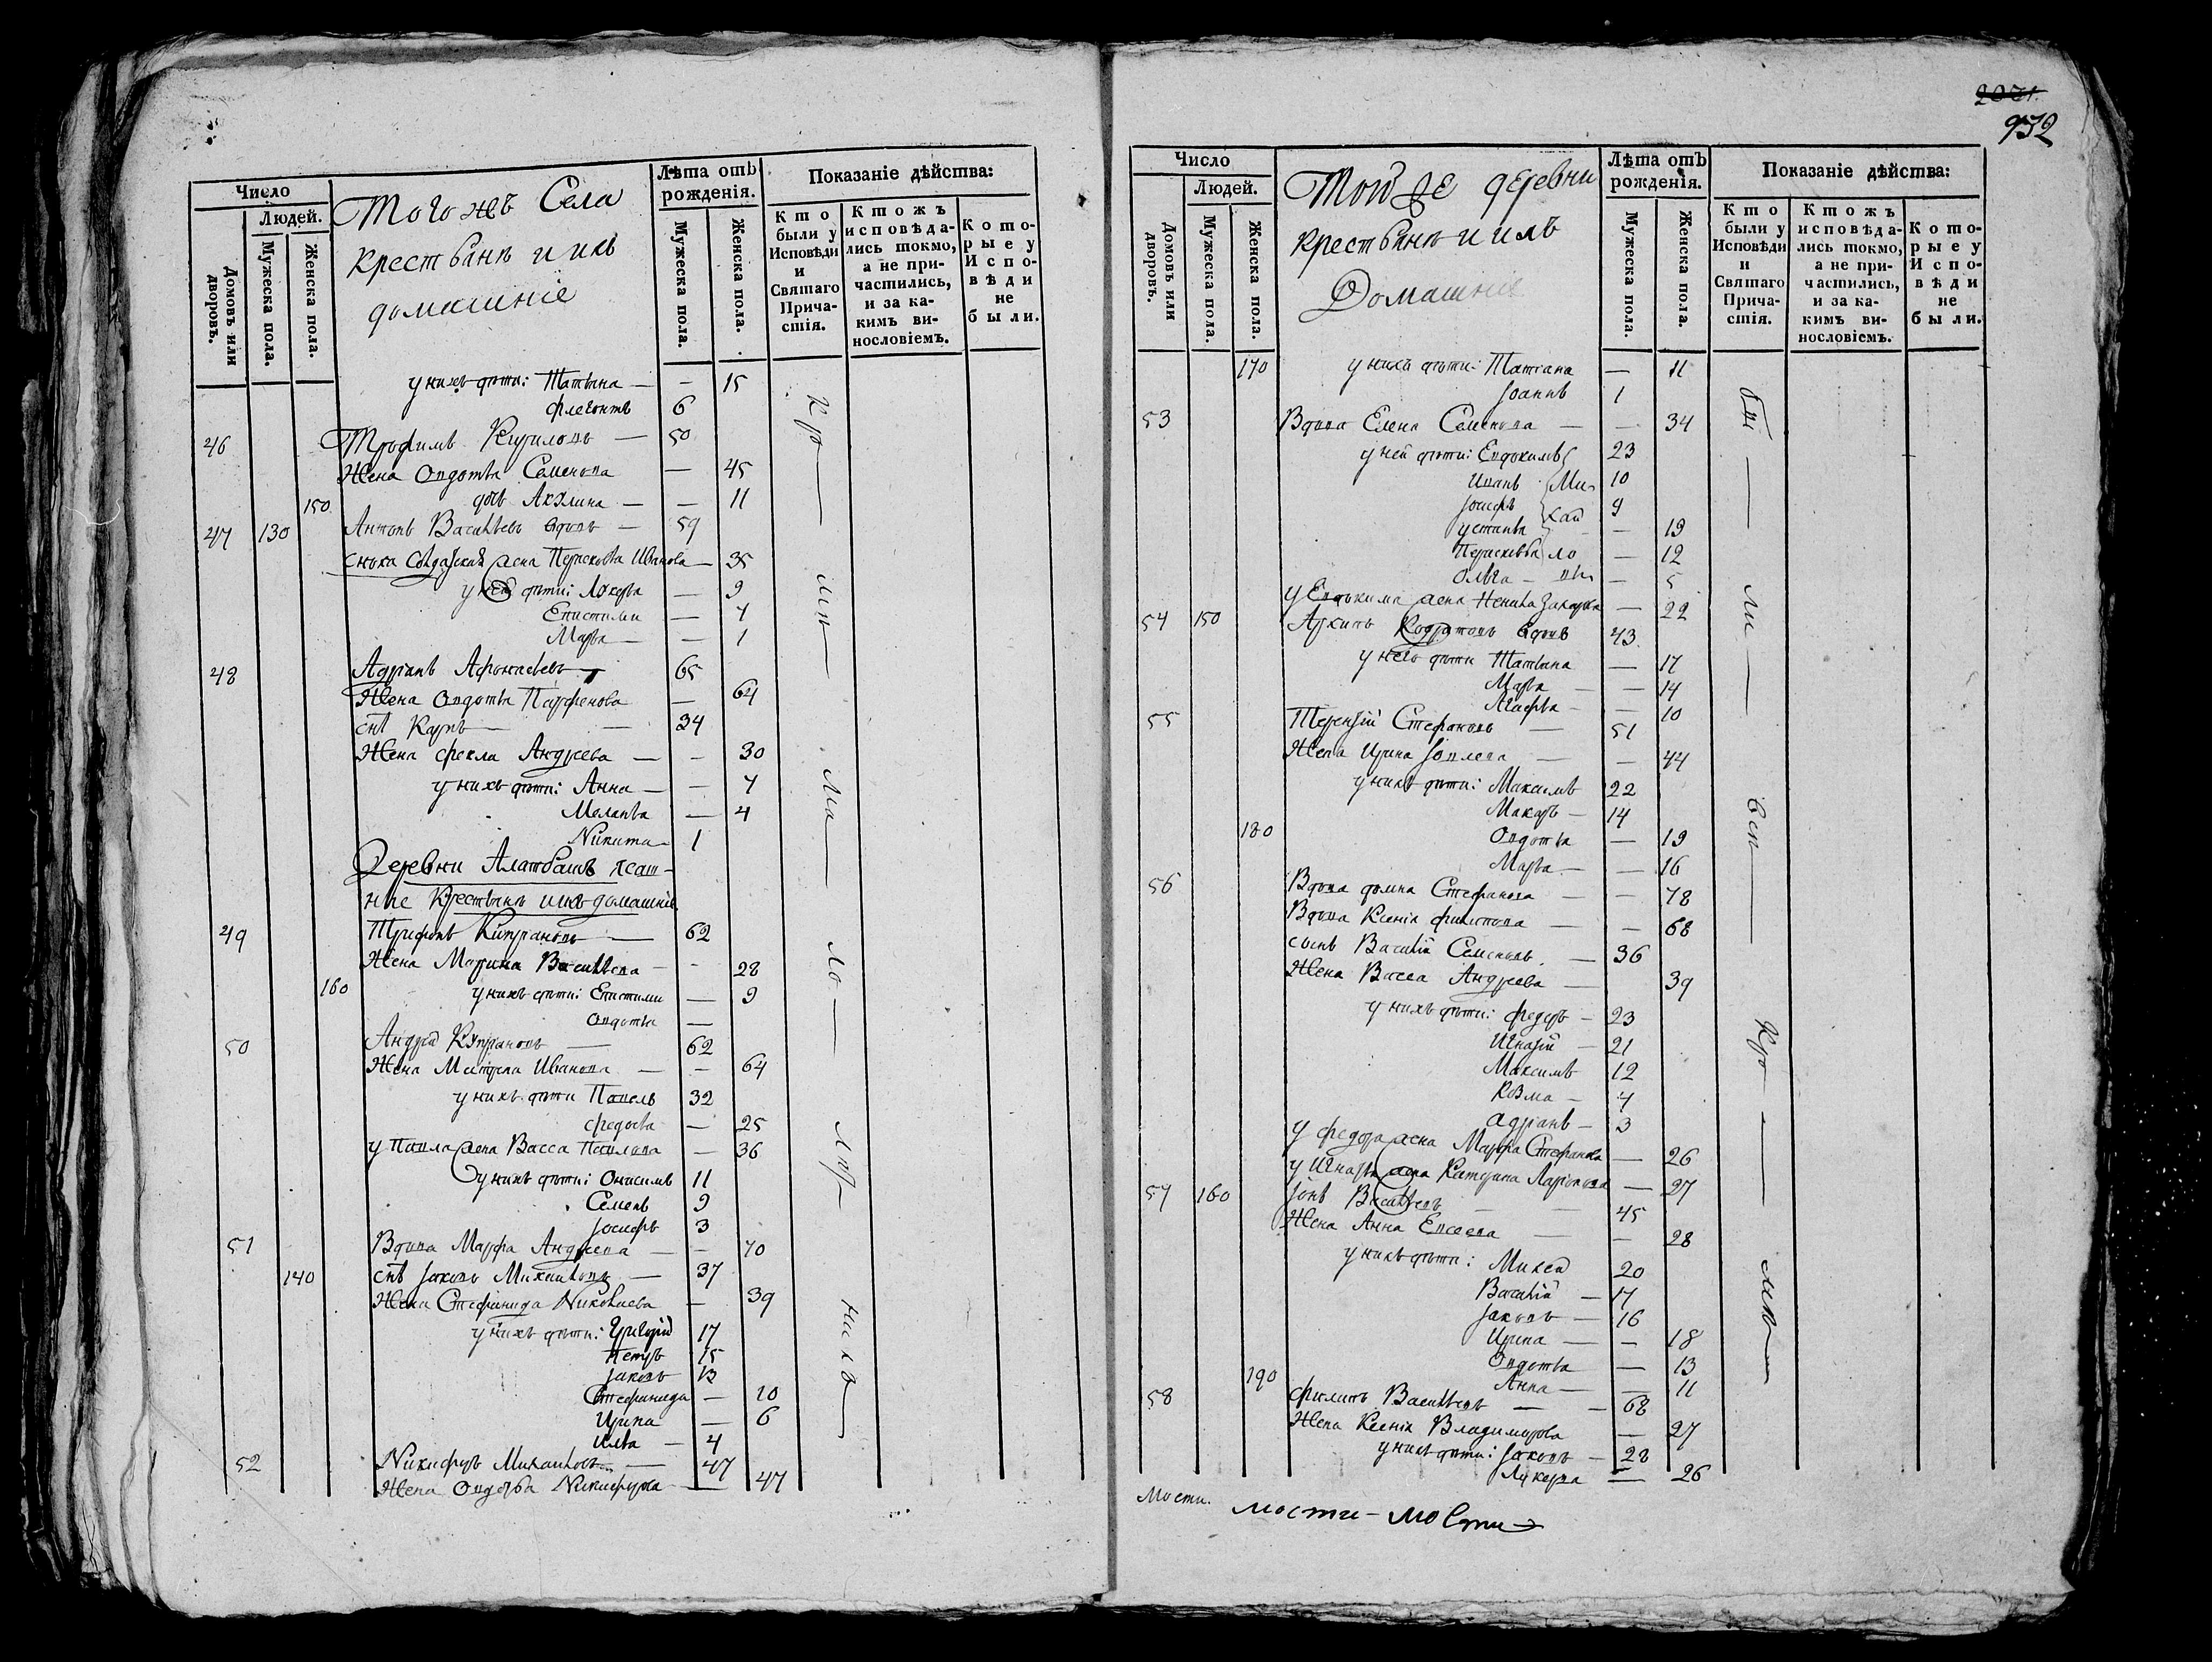 Число
Людей.
Домовъ или дворовъ.
Мужеска пола.
Женска пола.
Тогожъ Села
крестьянъ и ихъ
домашніе
Лѣта отъ рожденія.
Мужеска пола.
Женска пола.
Показаніе дѣйства:
Кто были у Исповѣди и Святаго Причастія.
Ктожъ исповѣдались токмо, а не причастились, и за какимъ винословіемъ.
Которые у Исповѣди не были.
у нихъ дѣти: Татьяна — — 15
Флегонтъ 6
46 Трофимъ Кириловъ — 50
Жена Овдотья Семенова — 45
150 дочь Акулина — — 11
47 130 Антонъ Васильевъ вдовъ — 59
сноха Солдатская жена Парасковья Иванова — 35
у ней дѣти: Лукерья — 9
Епистимия — 7
Марья — — 1
48 Адріанъ Афонасьевъ — 65
Жена Овдотья Парфенова — 64
снъ Карпъ — 34
Жена Фекла Андреева — — 30
у нихъ дѣти: Анна — — 7
Меланья — 4
Никита — 1
Деревни Алатбашъ ясаш-
ные Крестьянъ и ихъ домашніе
49 Трифонъ Кипрановъ — 62
Жена Марина Васильева — — 28
160 у нихъ дѣти: Епистимия — 9
Овдотья —
50 Андрей Кипрановъ — 62
Жена Матрена Иванова — — 64
у нихъ дѣти Павелъ 32
Федосья — 25
у Павла жена Васса Павлова — 36
у нихъ дѣти: Онисимъ 11
Семенъ 9
Іосифъ 3
51 Вдова Марфа Андреева — — 70
140 снъ Іаковъ Михайловъ — 37
Жена Стефанида Николаева — 39
у нихъ дѣти: Григорій 17
Петръ 15
Іаковъ 13
Стефанида — 10
Ирина — 6
Илья — 4
52 Никифоръ Михайловъ — 47
Жена Овдотья Никифорова — 47
932
Число
Людей.
Домовъ или дворовъ.
Мужеска пола.
Женска пола.
Той же деревни
крестьянъ и ихъ
Домашніе
Лѣта отъ рожденія.
Мужеска пола.
Женска пола.
Показаніе дѣйства:
Кто были у Исповѣди и Святаго Причастія.
Ктожъ исповѣдались токмо, а не причастились, и за какимъ винословіемъ.
Которые у Исповѣди не были.
170 у нихъ дѣти: Татіана — 11
Іоаннъ 1
53 Вдова Елена Семенова — — 34
у ней дѣти: Евдокимъ 23
Иванъ Ми- 10
Іосифъ хай 9
Устинья — 19
Парасковья ло — 12
Ольга — вы — 5
у Евдокима жена Ненила Захарова — 22
54 150 Архипъ Кодратовъ вдовъ 43
у него дѣти Татьяна — 17
Марья — — 14
Агафья — — 10
55 Терентій Стефановъ — 51
Жена Ирина Іовлева — — 44
у нихъ дѣти: Максимъ 22
Макаръ — 14
180 Овдотья — 19
Марья — — 16
56 Вдова Домна Стефанова — — 78
Вдова Ксенія Филипова — — 68
сынъ Василій Семеновъ — 36
Жена Васса Андреева — 39
у нихъ дѣти: Федоръ — 23
Игнатій — 21
Максимъ 12
Козма — 7
Адріанъ — 3
у Федора жена Марфа Стефанова — 26
у Игнатья жена Катерина Ларіонова — 27
57 160 Іонъ Васильевъ — — 45
Жена Анна Евсеева — — 28
у нихъ дѣти: Михей 20
Василій — 17
Іаковъ — 16
Ирина — — 18
Овдотья — 13
190 Анна — — 11
58 Филипъ Васильевъ — — 68
Жена Ксенія Владимирова — 27
у нихъ дѣти: Іаковъ — 28
Лукерья — 26
Мости.
мости — мости